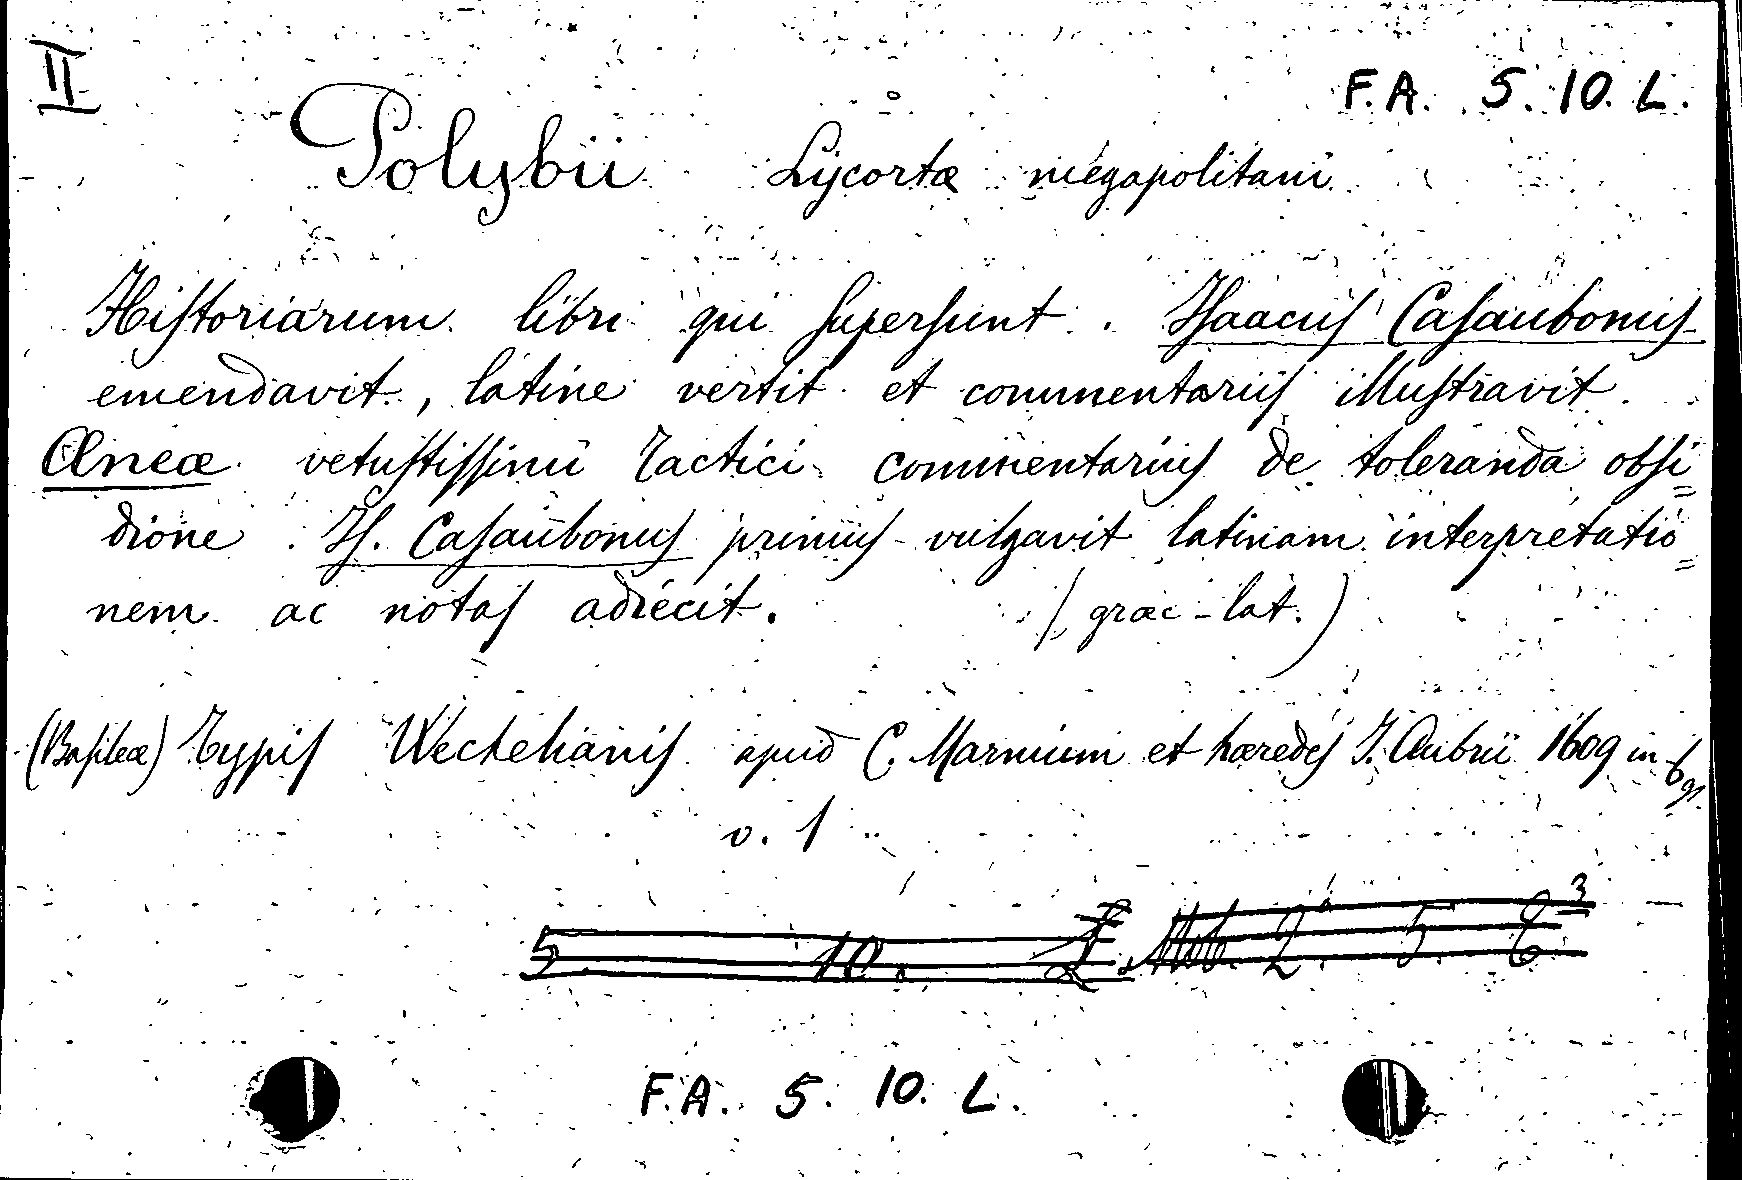 II
F.A. 5. 10. L.
Polybii Lycortæ megapolitani
Historiarum libri qui supersunt. Isaacus Casaubonus
emendavit, latine vertit et commentariis illustravit.
Æneæ vetustissimi Tactici commentarius de toleranda obsi=
dione. Is. Casaubonus primus vulgavit latinam interpretatio=
nem ac notas adiecit. (græc-lat.)
(Basileæ) Typis Wechelianis apud C. Marnium et hæredes J. Aubrii 1609 in-6
v. 1
5. 10. L Mob. 2. 5. 6 3
F.A. 5. 10. L.